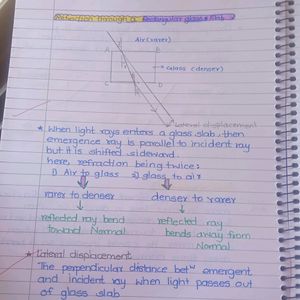 Refraction through a Rectangular glass slab
Air (rarer)
A B
Glass (denser)
C D
Lateral displacement
* When light rays enters a glass slab, then
emergence ray is parallel to incident ray
but it is shifted sideward.
here, refraction being twice:
1) Air to glass 2) glass to air
rarer to denser denser to rarer
reflected ray bend reflected ray
toward Normal bends away from
Normal
* Lateral displacement
The perpendicular distance betⁿ emergent
and incident ray when light passes out
of glass slab